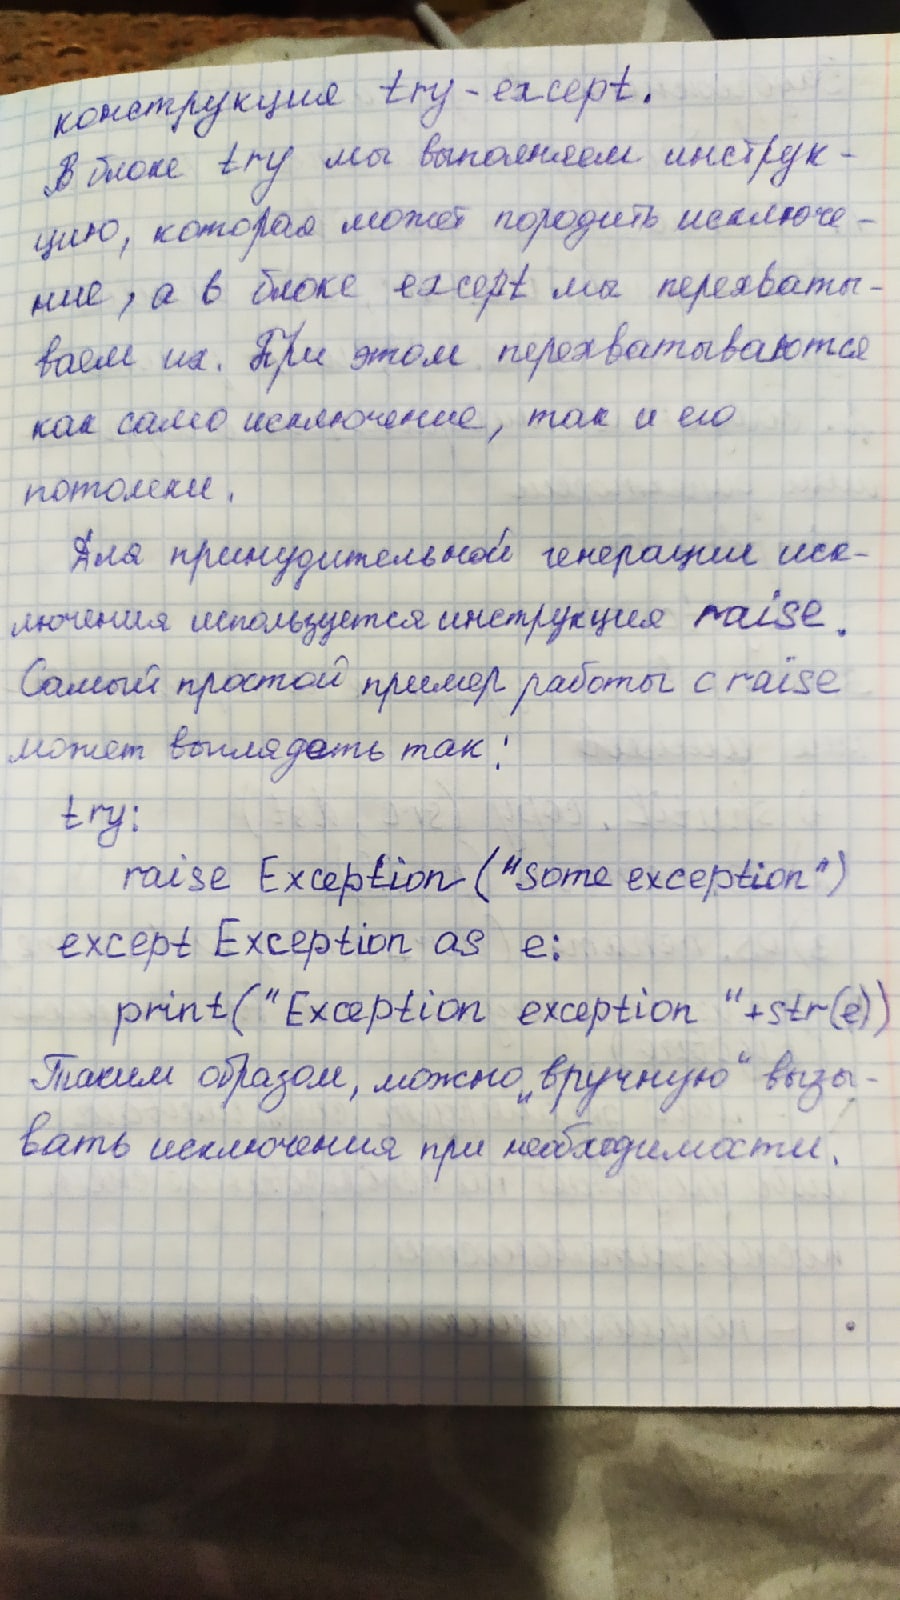 конструкция try-except.
В блоке try мы выполняем инструк-
цию, которая может породить исключе-
ние, а в блоке except мы перехваты-
ваем их. При этом перехватываются
как само исключение, так и его
потомки.
Для принудительной генерации иск-
лючения используется инструкция raise.
Самый простой пример работы с raise
может выглядеть так:
try:
raise Exception("some exception")
except Exception as e:
print("Exception exception "+str(e))
Таким образом, можно „вручную“ вызы-
вать исключения при необходимости.